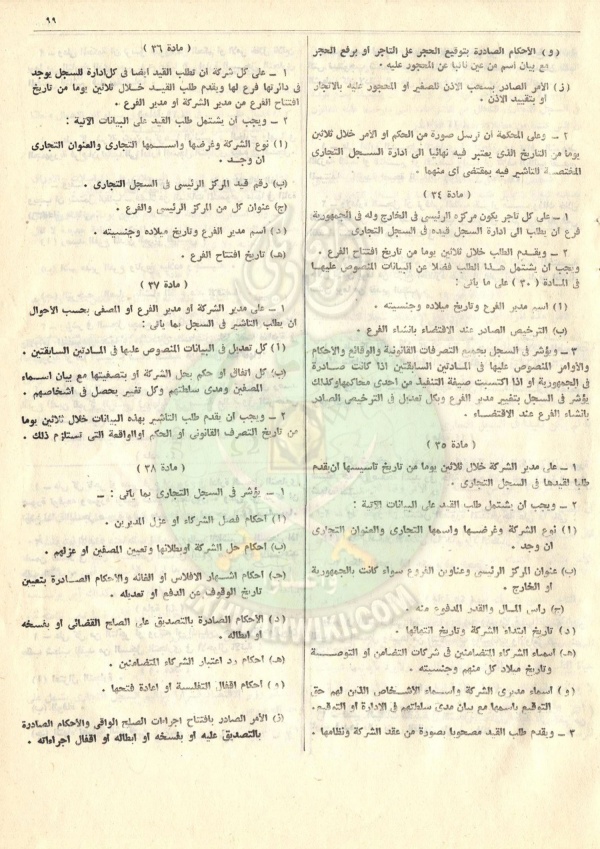 ٩٩
( و ) الأحكام الصادرة بتوقيع الحجر على التاجر او برفع الحجر
مع بيان اسم من عين نائبا عن المحجور عليه .
( ز ) الأمر الصادر بسحب الاذن للصغير او المحجور عليه بالاتجار
او بتقييد الاذن .
٢ ـ وعلى المحكمة ان ترسل صورة من الحكم او الامر خلال ثلاثين
يوما من التاريخ الذى يعتبر فيه نهائيا الى ادارة السجل التجارى
المختصة للتاشير فيه بمقتضى اى منهما .
( مادة ٣٤ )
١ ـ على كل تاجر يكون مركزه الرئيسى فى الخارج وله فى الجمهورية
فرع ان يطلب الى ادارة السجل قيده فى السجل التجارى .
٢ ـ ويقدم الطلب خلال ثلاثين يوما من تاريخ افتتاح الفرع .
ويجب ان يشتمل هذا الطلب فضلا عن البيانات المنصوص عليها
فى المادة ( ٣٠ ) على ما ياتى :
(أ) اسم مدير الفرع وتاريخ ميلاده وجنسيته .
(ب) الترخيص الصادر عند الاقتضاء بانشاء الفرع .
٣ ـ ويؤشر فى السجل بجميع التصرفات القانونية والوقائع والأحكام
والأوامر المنصوص عليها فى المادتين السابقتين اذا كانت صادرة
فى الجمهورية او اذا اكتسبت صيغة التنفيذ من احدى محاكمها وكذلك
يؤشر فى السجل بتغيير مدير الفرع وبكل تعديل فى الترخيص الصادر
بانشاء الفرع عند الاقتضاء .
( مادة ٣٥ )
١ ـ على مدير الشركة خلال ثلاثين يوما من تاريخ تاسيسها ان يقدم
طلبا لقيدها فى السجل التجارى .
٢ ـ ويجب ان يشتمل طلب القيد على البيانات الآتية :
(أ) نوع الشركة وغرضها واسمها التجارى والعنوان التجارى
ان وجد .
(ب) عنوان المركز الرئيسى وعناوين الفروع سواء كانت بالجمهورية
او الخارج .
(ج) راس المال والقدر المدفوع منه .
( د ) تاريخ ابتداء الشركة وتاريخ انتهائها .
(هـ) اسماء الشركاء المتضامنين فى شركات التضامن او التوصية
وتاريخ ميلاد كل منهم وجنسيته .
( و ) اسماء مديرى الشركة واسماء الأشخاص الذين لهم حق
التوقيع باسمها مع بيان مدى سلطتهم فى الادارة او التوقيع .
٣ ـ ويقدم طلب القيد مصحوبا بصورة من عقد الشركة ونظامها .
( مادة ٣٦ )
١ ـ على كل شركة ان تطلب القيد ايضا فى كل ادارة للسجل يوجد
فى دائرتها فرع لها ويقدم طلب القيد خلال ثلاثين يوما من تاريخ
افتتاح الفرع من مدير الشركة او مدير الفرع .
٢ ـ ويجب ان يشتمل طلب القيد على البيانات الآتية :
(أ) نوع الشركة وغرضها واسمها التجارى والعنوان التجارى
ان وجد .
(ب) رقم قيد المركز الرئيسى فى السجل التجارى .
(ج) عنوان كل من المركز الرئيسى والفرع .
( د ) اسم مدير الفرع وتاريخ ميلاده وجنسيته .
(هـ) تاريخ افتتاح الفرع .
( مادة ٣٧ )
١ ـ على مدير الشركة او مدير الفرع او المصفى بحسب الأحوال
ان يطلب التاشير فى السجل بما ياتى :
(أ) كل تعديل فى البيانات المنصوص عليها فى المادتين السابقتين .
(ب) كل اتفاق او حكم بحل الشركة او بتصفيتها مع بيان اسماء
المصفين ومدى سلطتهم وكل تغيير يحصل فى اشخاصهم .
٢ ـ ويجب ان يقدم طلب التاشير بهذه البيانات خلال ثلاثين يوما
من تاريخ التصرف القانونى او الحكم او الواقعة التى تستلزم ذلك .
( مادة ٣٨ )
١ ـ يؤشر فى السجل التجارى بما ياتى :
(أ) احكام فصل الشركاء او عزل المديرين .
(ب) احكام حل الشركة او بطلانها وتعيين المصفين او عزلهم .
(جـ) احكام اشهار الافلاس او الغائه والأحكام الصادرة بتعيين
تاريخ الوقوف عن الدفع او تعديله .
( د ) الأحكام الصادرة بالتصديق على الصلح القضائى او بفسخه
او ابطاله .
(هـ) احكام رد اعتبار الشركاء المتضامنين .
( و ) احكام اقفال التفليسة او اعادة فتحها .
(ز) الأمر الصادر بافتتاح اجراءات الصلح الواقى والأحكام الصادرة
بالتصديق عليه او بفسخه او ابطاله او اقفال اجراءاته .